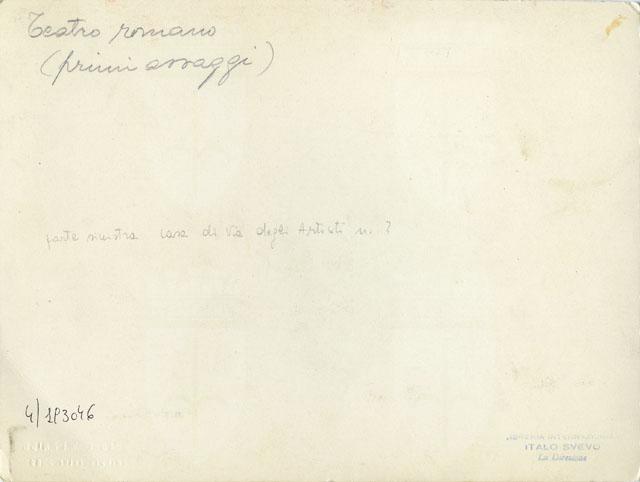 Teatro romano
(primi assaggi)
parte sinistra casa di Via degli Artisti n. ?
4/183046
LIBRERIA INTERNAZIONALE
ITALO SVEVO
La Direzione